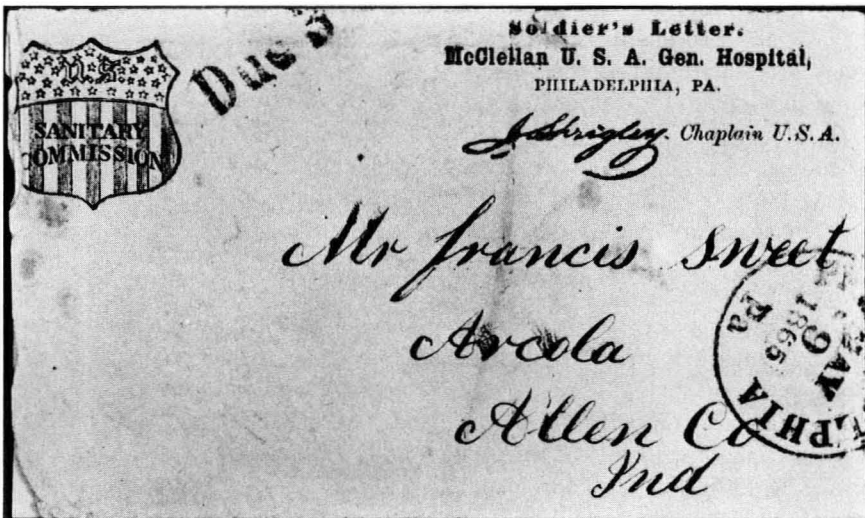 U S
SANITARY
COMMISSION
Due 3
Soldier's Letter.
McClellan U. S. A. Gen. Hospital,
PHILADELPHIA, PA.
J Shrigley. Chaplain U.S.A.
Mr francis sweet
Arcola
Allen Co
Ind
LPHIA
Pa
MAY
9
1865